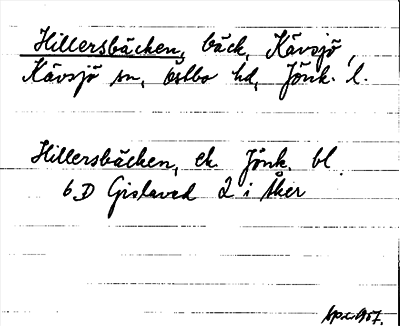 Hillersbäcken, bäck, Kävsjö,
Kävsjö sn, Östbo hd, Jönk. l.
Hillersbäcken, ek. Jönk. bl
6D Gislaved 2 i Åker